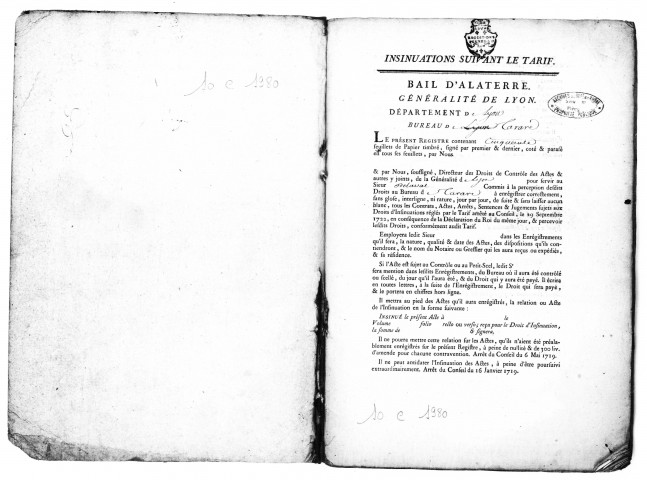 10 C 1980
INSINUATIONS SUIVANT LE TARIF.
BAIL D'ALATERRE.
GÉNÉRALITÉ DE LYON.
DÉPARTEMENT De Lyon
BUREAU De Lyon Tarare
LE PRÉSENT REGISTRE contenant Cinquante
feuillets de Papier timbré, signé par premier & dernier, coté & paraphé
en tous ses feuillets, par Nous
& par Nous, soussigné, Directeur des Droits de Contrôle des Actes &
autres y joints, de la Généralité de Lyon pour servir au
Sieur Commis à la perception desdits
Droits au Bureau de Tarare à enrégistrer correctement,
sans glose, interligne, ni rature, jour par jour, de suite & sans laisser aucun
blanc, tous les Contrats, Actes, Arrêts, Sentences & Jugemens sujets aux
Droits d'Insinuations réglés par le Tarif arrêté au Conseil, le 29 Septembre
1722, en conséquence de la Déclaration du Roi du même jour, & percevoir
lesdits Droits, conformément audit Tarif.
Employera ledit Sieur dans les Enrégistrements
qu'il fera, la nature, qualité & date des Actes, des dispositions qu'ils con-
tiendront, & le nom du Notaire ou Greffier qui les aura reçus ou expédiés,
& sa résidence.
Si l'Acte est sujet au Contrôle ou au Petit-Scel, ledit Sr
fera mention dans lesdits Enrégistrements, du Bureau où il aura été contrôlé
ou scellé, du jour qu'il l'aura été, & du Droit qui y aura été payé. Il écrira
en toutes lettres, à la suite de l'Enrégistrement, le Droit qui sera payé,
& le portera en chiffres hors ligne.
Il mettra au pied des Actes qu'il aura enrégistrés, la relation ou Acte
de l'Insinuation en la forme suivante :
INSINUÉ le présent Acte à le
Volume folio recto ou verso; reçu pour le Droit d'Insinuation,
la somme de & signera.
Il ne pourra mettre cette relation sur les Actes, qu'ils n'aient été préala-
blement enrégistrés sur le présent Registre, à peine de nullité & de 300 liv.
d'amende pour chacune contravention. Arrêt du Conseil du 6 Mai 1719.
Il ne peut antidater l'Insinuation des Actes, à peine d'être poursuivi
extraordinairement. Arrêt du Conseil du 16 Janvier 1719.
10 C 1980